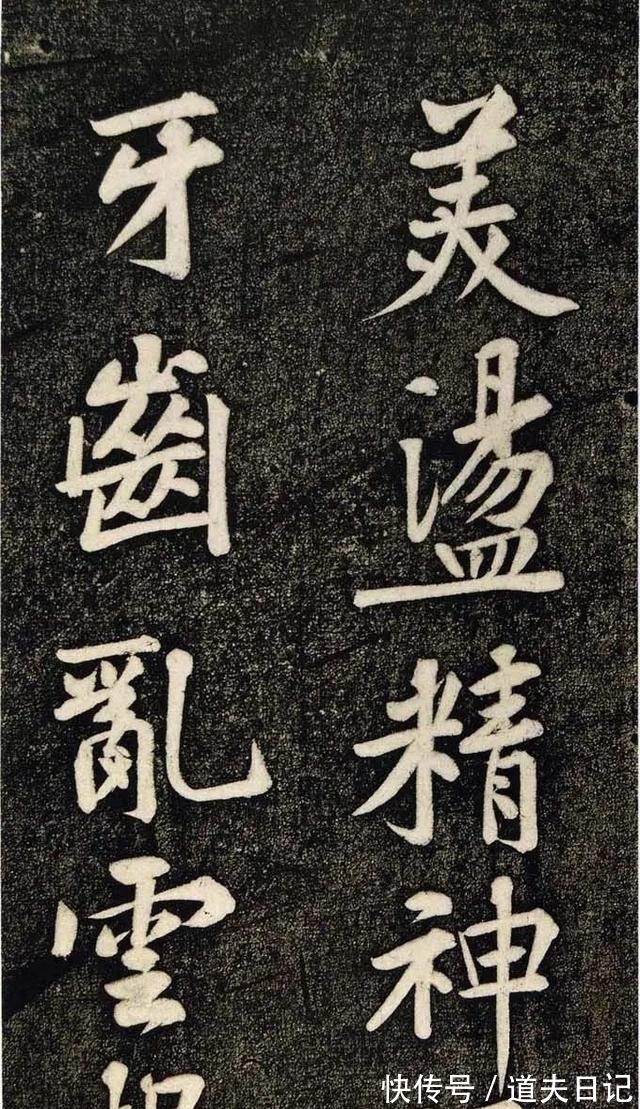 美盪精神
牙齒亂雲
快传号/道夫日记